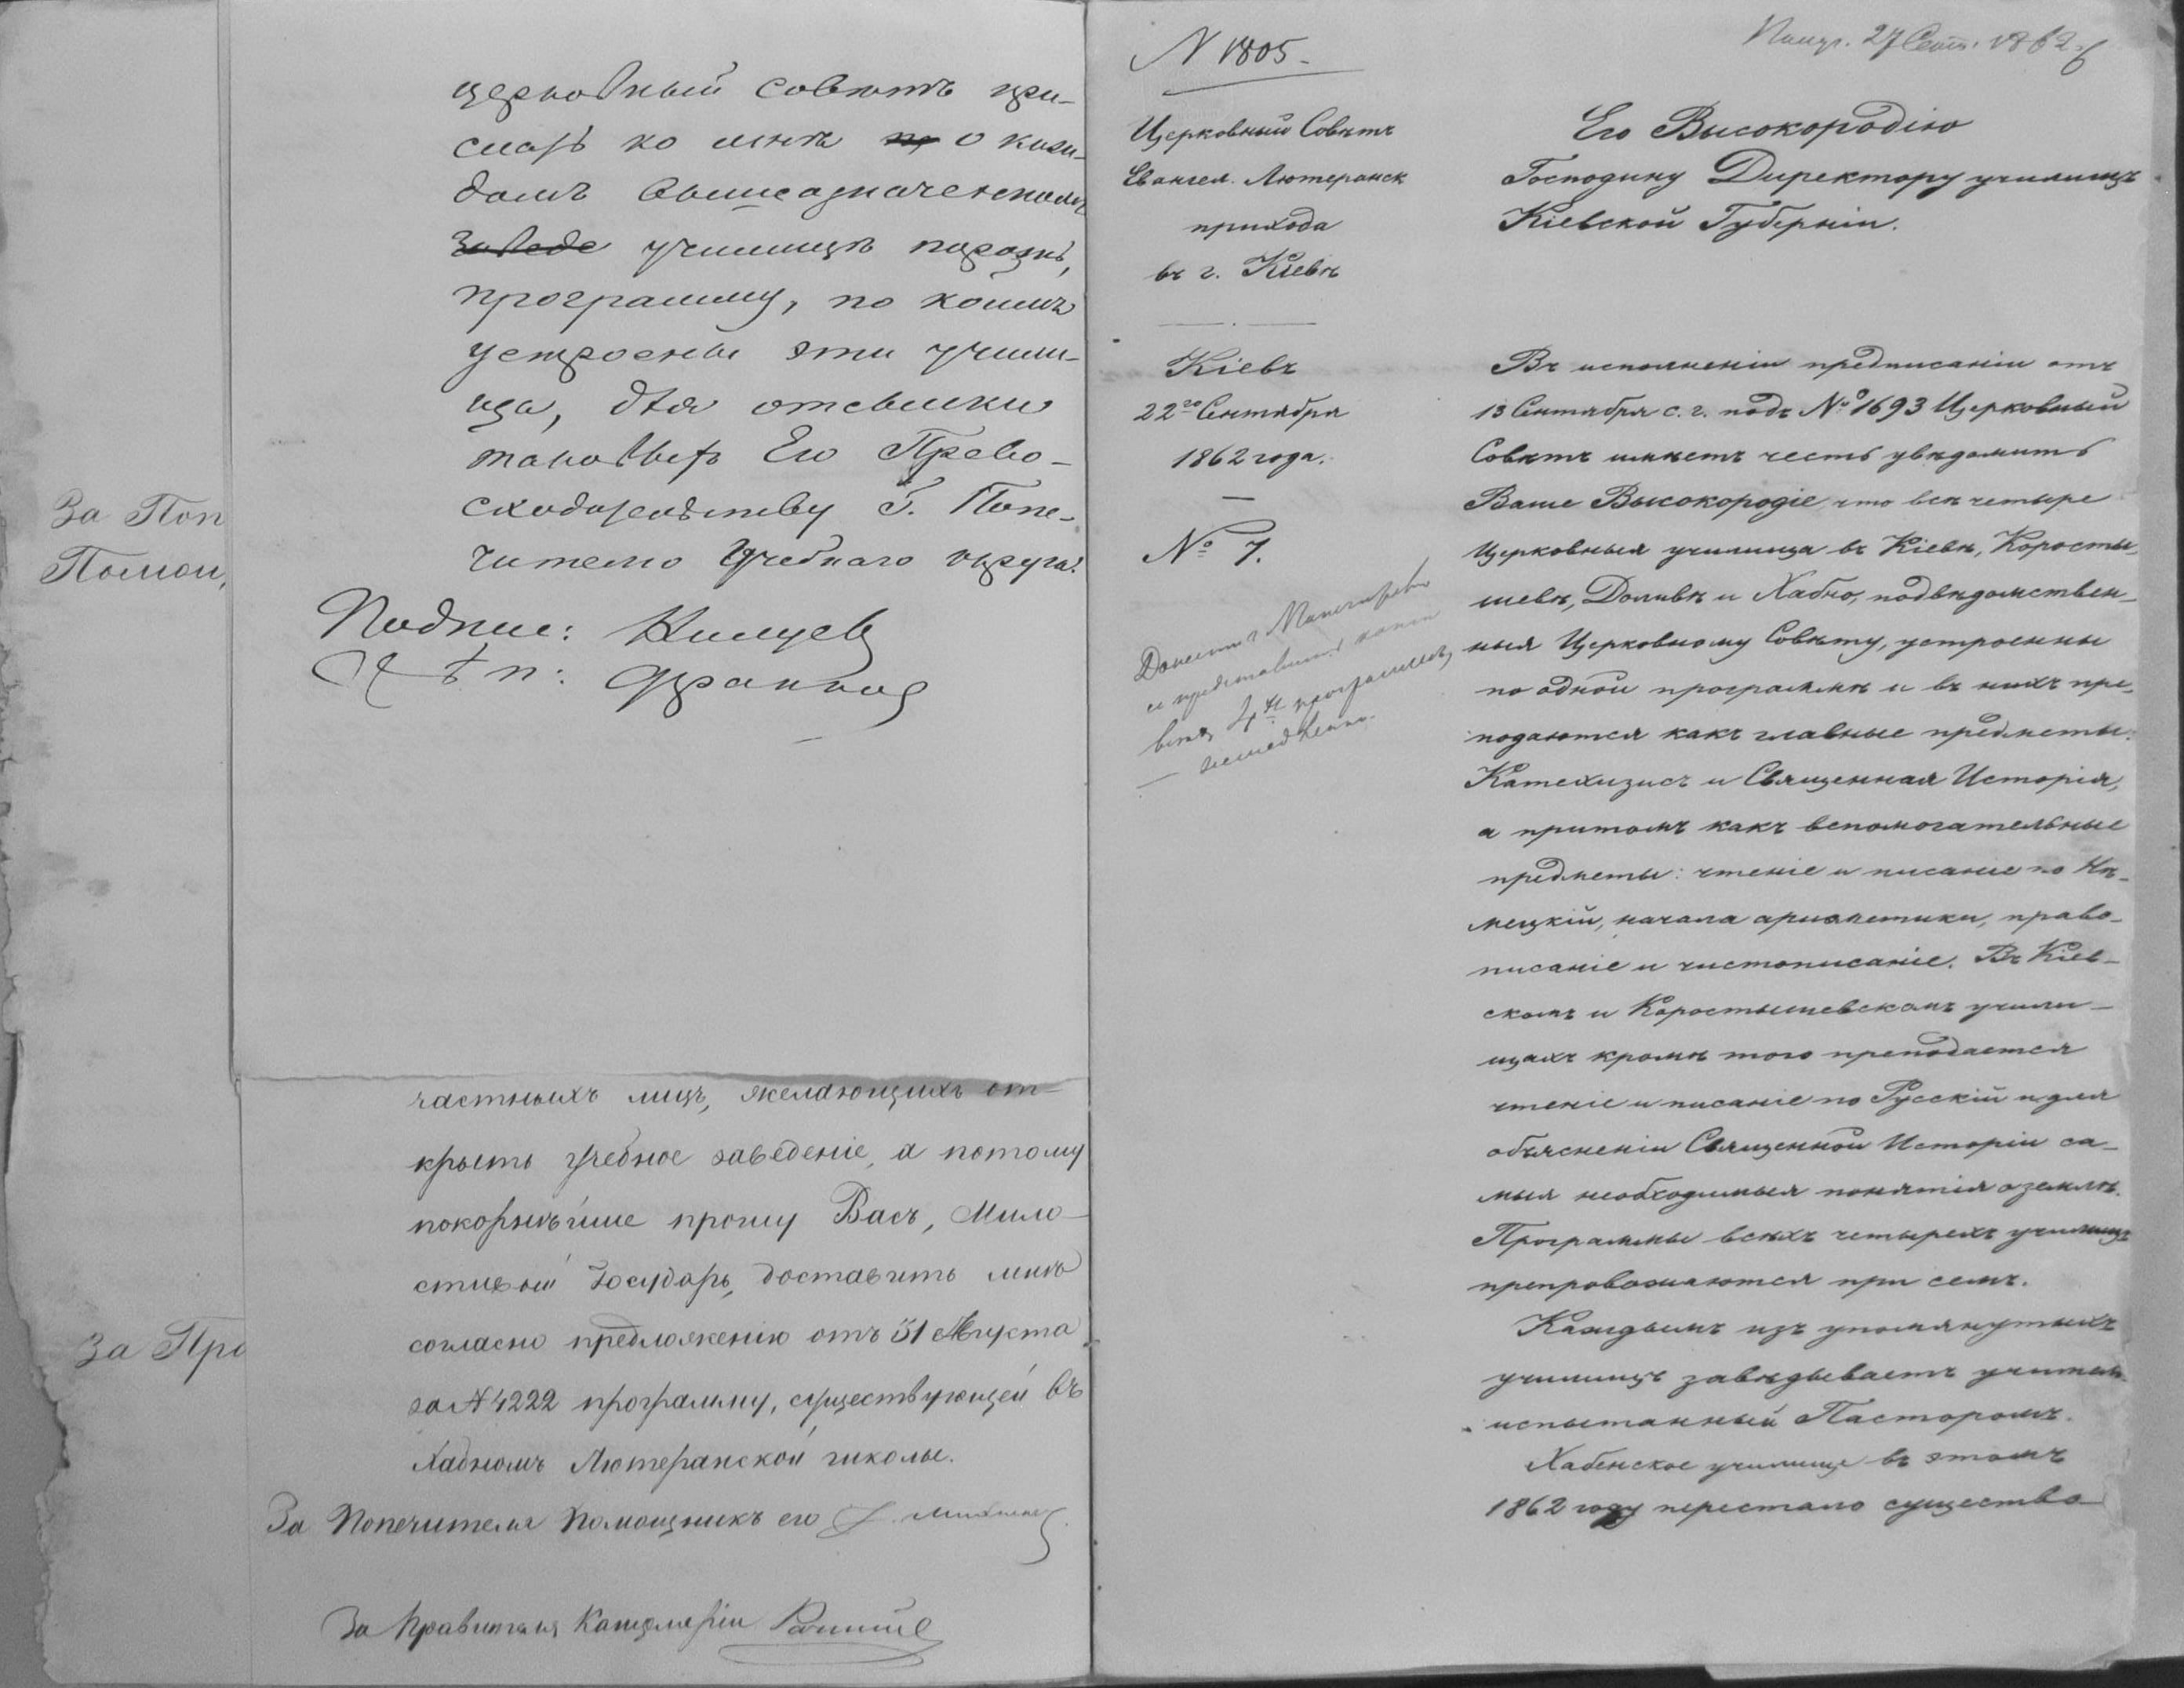 церковный совѣтъ при-
слать ко мнѣ о каж-
домъ вышеозначенномъ
заведе училищѣ порознь,
программу, по коимъ
устроены эти учили-
ща, для отсылки
таковыхъ Его Прево-
сходительству Г. Попе-
чителю Учебнаго округа.
Подпис:
За Поп
Помощ
частныхъ лицъ, желающихъ от-
крыть учебное заведеніе, а потому
покорнѣйше прошу Васъ, Мило-
стивый Государь, доставить мнѣ
согласно предложенію отъ 31 Августа
за № 4222 программу, существующей въ
Хабномъ Лютеранской школы.
За Попечителя Помощникъ его
За Правителя Канцеляріи
За Пра
N 1805.
Получ. 27 Сент. 1862 г.
Церковный Совѣтъ
Евангел. Лютеранск
прихода
въ г. Кіевѣ
Кіевъ
22го Сентября
1862 года.
№ 7.
и представить копіи
всѣхъ 4х программъ
немедленно.
Его Высокородію
Господину Директору училищъ
Кіевской Губерніи.
Въ исполненіи предписаніи отъ
13 Сентября с. г. подъ № 1693 Церковный
Совѣтъ имѣетъ честь увѣдомить
Ваше Высокородіе, что всѣ четыре
Церковныя училища въ Кіевѣ, Коросты-
шевѣ, Доливѣ и Хабно, подвѣдомствен-
ныя Церковному Совѣту, устроенны
по одной программѣ и въ нихъ пре-
подаются какъ главные предметы:
Катехизисъ и Священная Исторія,
а притомъ какъ вспомогательные
предметы: чтеніе и писаніе по Нѣ-
мецкій, начала ариѳметики, право-
писаніе и чистописаніе. Въ Кіев-
скомъ и Коростышевскомъ учили-
щахъ кромѣ того преподается
чтеніе и писаніе по Русскій и для
объясненіи Священной Исторіи са-
мыя необходимыя понятія о землѣ.
Программы всѣхъ четырехъ училищъ
препровожаются при семъ.
Каждымъ изъ упомянутыхъ
училищъ завѣдываетъ учитель
испытанный Пасторомъ.
Хабенское училище въ этомъ
1862 году перестало существо-